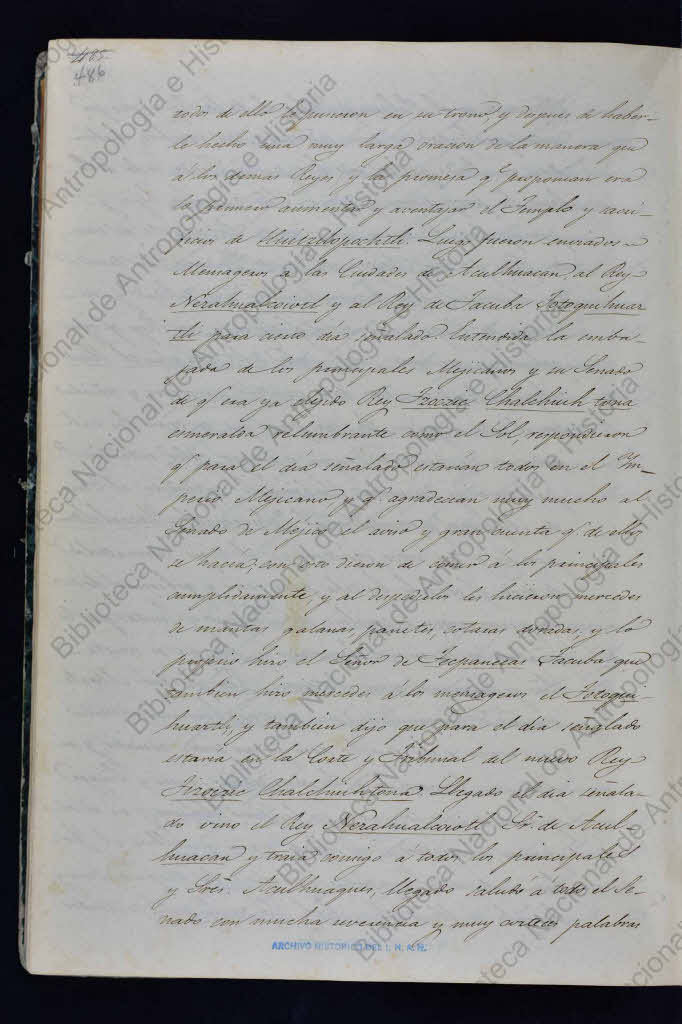 485
486
todos de ello le pusieron en su trono y despues de haber-
le hecho una muy larga oracion de la manera que
á los demas Reyes y la promesa q.e proponian era
lo primero aumentar y aventajar el Templo y sacri-
ficios de Huitzilopochtli. Luego fueron enviados
Mensageros a las Ciudades de Aculhuacan, al Rey
Nezahualcoiotl y al Rey de Tacuba Totoquihuaz-
tli para cierto dia señalado. Entendida la emba-
jada de los principales Mejicanos y su Senado
de q.e era ya elejido Rey Tizozic Chalchiuh tona
esmeralda relumbrante como el Sol, respondieron
q.e para el dia señalado estarian todos en el Im-
perio Mejicano y q.e agradecian muy mucho al
Senado de Mejico el aviso y gran cuenta q.e de ellos
se hacia; con esto dieron de comer á los principales
cumplidamente, y al despedirlos les hicieron mercedes
de mantas galanas pañetes, cotaras doradas, y lo
propio hizo el Señor de Tecpanecas Tacuba que
tambien hizo mercedes á los mensageros el Totoqui-
huaztli, y tambien dijo que para el dia señalado
estaria en la Corte y Tribunal del nuevo Rey
Tizozic Chalchiuhtona. Llegado el dia señala-
do vino el Rey Nezahualcoiotl Sr. de Acul-
huacan y traia consigo a todos los principales
y Sres. Aculhuaques, llegado saludó á todo el Se-
nado con mucha reverencia y muy corteces palabras
ARCHIVO HISTORICO DEL I. N. A. H.
Biblioteca Nacional de Antropología e Historia